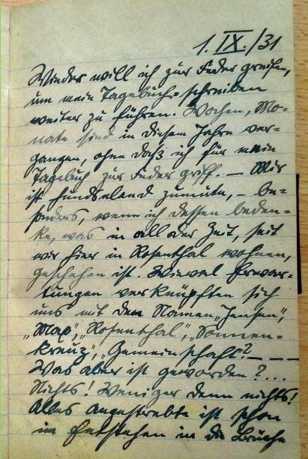 1. IX./31
Wieder will ich zur Feder greifen,
um mein Tagebuch-schreiben
weiter zu führen. Wochen, Mo-
nate sind in diesem Jahre ver-
gangen, ohne daß ich für mein
Tagebuch zur Feder griff. — Mir
ist hundselend zumute, – be-
sonders, wenn ich dessen beden-
ke, was in all der Zeit, seit
wir hier in Rosenthal wohnen,
geschehen ist. Wieviel Erwar-
tungen verknüpften sich
uns mit den Namen „Jensen",
„Max", „Rosenthal", „Sonnen-
kreuz", „Gemeinschaft"? — —
Was aber ist geworden? ...
Nichts! Weniger denn nichts!
Alles Angestrebte ist schon
im Entstehen in die Brüche